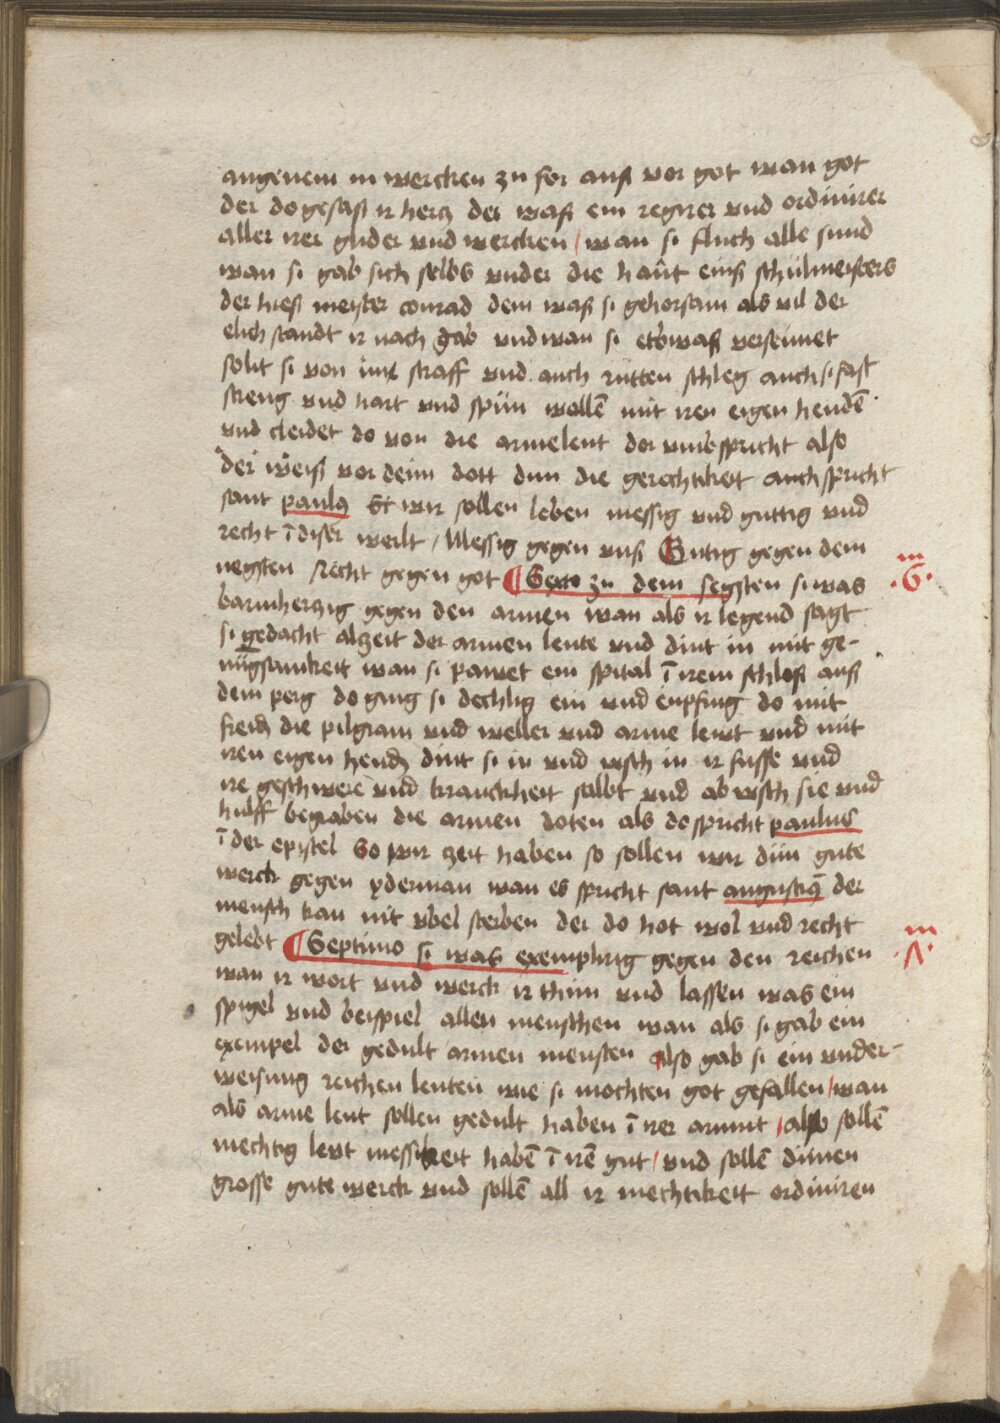 angenem in wercken zu for auß vor got wan got
der do gesaß ir hertz der waß ein regirer vnd ordinirer
aller irer glider vnd wercken / wan si fluch alle sund
wan si gab sich selbs vnder die haut einß schulmeisters
der hieß meister conrad dem waß si gehorsam als vil der
elich standt ir nach gab vnd wan si etbwaß verseumet
solit si von im straff vnd auch rutten schleg auch si fast
streng vnd hart vnd spun wollē mit iren eigen hendē
vnd cleidet do von die armeleut dor vmb spricht also
der weiß vor deim dott dun die gerechtikeit auch spricht
sant paulꝯ Et wir sollen leben messig vnd guttig vnd
recht ī diser werlt / Messig gegen vnß Gutig gegen dem
negsten Recht gegen got ¶ Sexto zu dem segsten si was
·6·
barmhertzig gegen den armen wan als ir legend sagt
si gedacht alzeit der armen leute vnd dint in mit ge-
nugsamkeit wan si pawet ein spital ī irem schloß auß
dem perg do ging si dechlig ein vnd enpfing do mit
freidꝫ die pilgram vnd weller vnd arme lewt vnd mit
iren eigen hendꝫ dint si in vnd wsch in ir fusse vnd
ire geschwere vnd kranckheit salbt vnd ab wsch sie vnd
hulff begraben die armen doten als do spricht paulus
ī der epistel So wir zeit haben so sollen wir dun gute
werck gegen yderman wan es spricht sant augustiꝯ der
mensch kan nit vbel sterben der do hot wol vnd recht
gelebt ¶ Septimo si was exemplirig gegen den reichen
·Λ·
wan ir wort vnd werck ir thun vnd lassen was ein
spigel vnd beispiel allen menschen wan als si gab ein
exempel der gedult armen mensten also gab si ein vnder-
weisung reichen leuten wie si mochten got gefallen / wan
als arme leut sollen gedult haben ī irer armut / also sollē
mechtig lewt messikeit habē ī irē gut / vnd sollē dinen
grosse gute werck vnd sollē all ir mechtikeit ordiniren